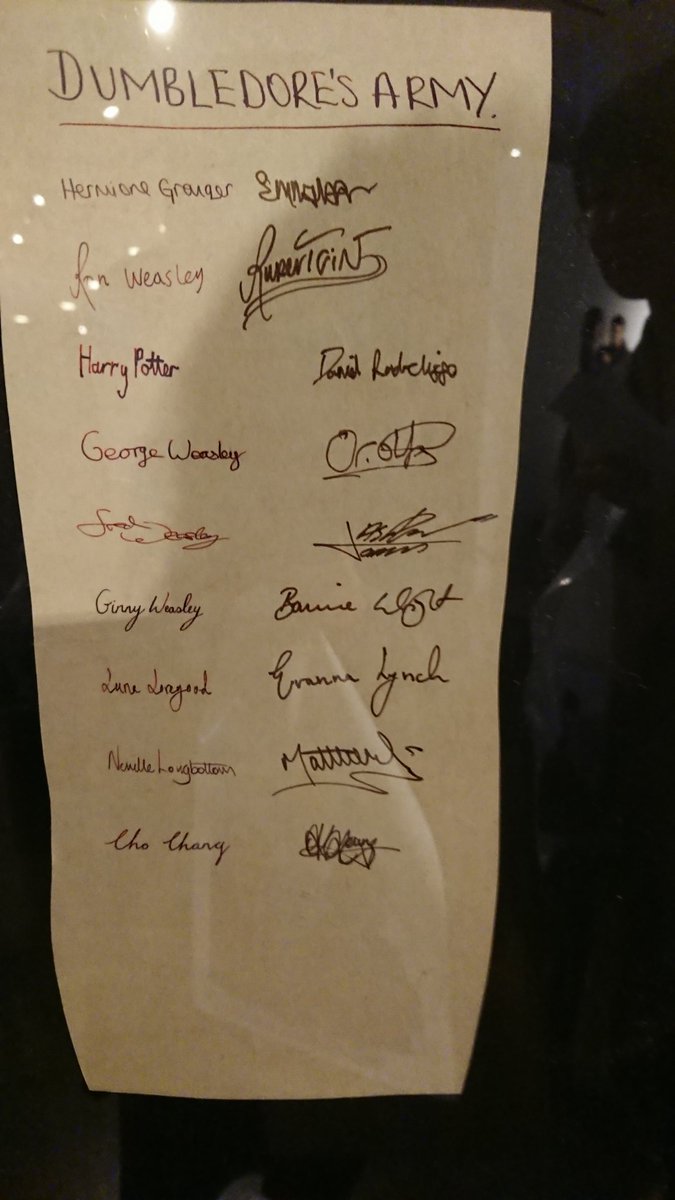 DUMBLEDORE'S ARMY.
Hermione Granger
Ron Weasley
Harry Potter Daniel Radcliffe
George Weasley
Fred Weasley
Ginny Weasley Bonnie Wright
Luna Lovegood Evanna Lynch
Neville Longbottom
Cho Chang